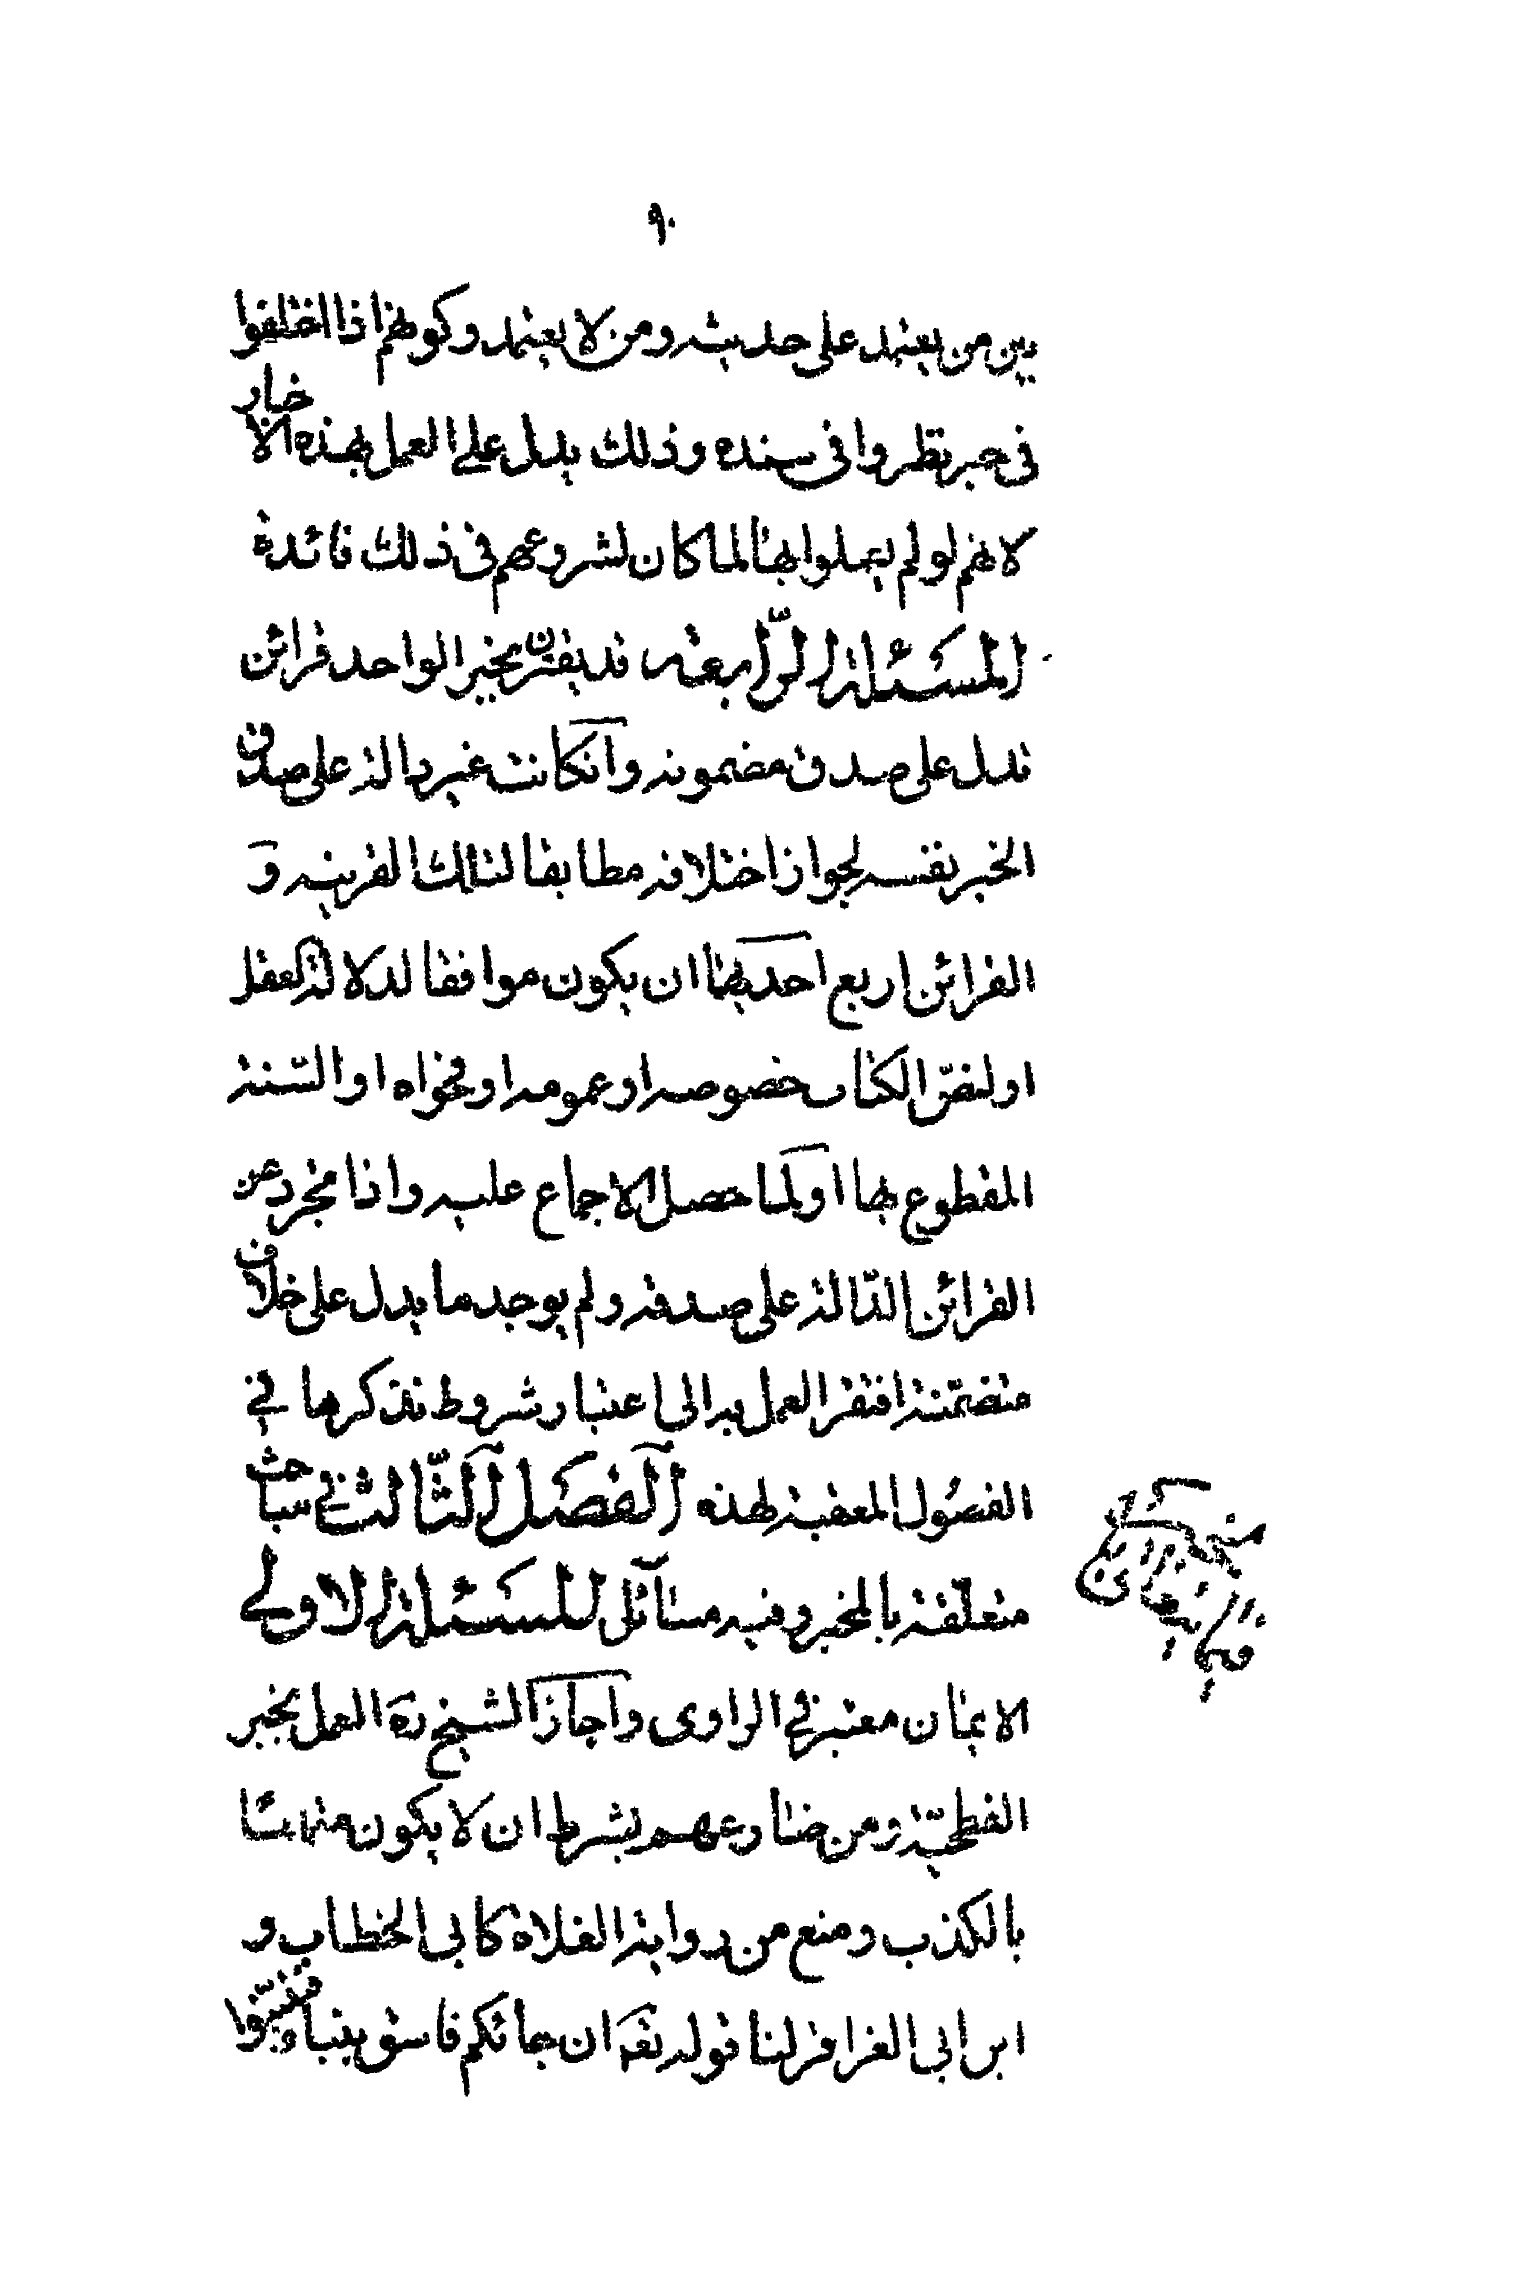 ٩٠
بين من يعتمد على حديثه ومن لا يعتمد وكونهم اذا اختلفوا
فى خبر نظروا فى سنده وذلك يدل على العمل بهذه الاخبار
لانهم لو لم يعملوا بها لما كان لشروعهم فى ذلك فائدة
المسئلة الرّابعة قد يقترن بخبر الواحد قرائن
تدل على صدق مضمونه وان كانت غير دالة على صدق
الخبر بنفسه لجواز اختلاقه مطابقا لتلك القرينه و
القرائن اربع احديها ان يكون موافقا لدلالة العقل
او لنصّ الكتاب خصوصه او عمومه او فحواه او السّنة
المقطوع بها او لما حصل الاجماع عليه واذا تجرد عن
القرائن الدّالة على صدقه ولم يوجد ما يدل على خلاف
متضمّنة افتقر العمل به الى اعتبار شروط نذكرها في
الفصول المعقبة لهذه الفصل الثّالث في مباحث
متعلّقة بالمخبر وفيه مسائل المسئلة الاولى
الايمان معتبر في الراوى واجاز الشيخ ره العمل بخبر
الفطحيّة ومن ضارعهم بشرط ان لا يكون متهما
بالكذب ومنع من رواية الغلاة كابى الخطاب و
ابن ابى العزاقر لنا قوله تعه ان جائكم فاسق بنباء فتبيّنوا